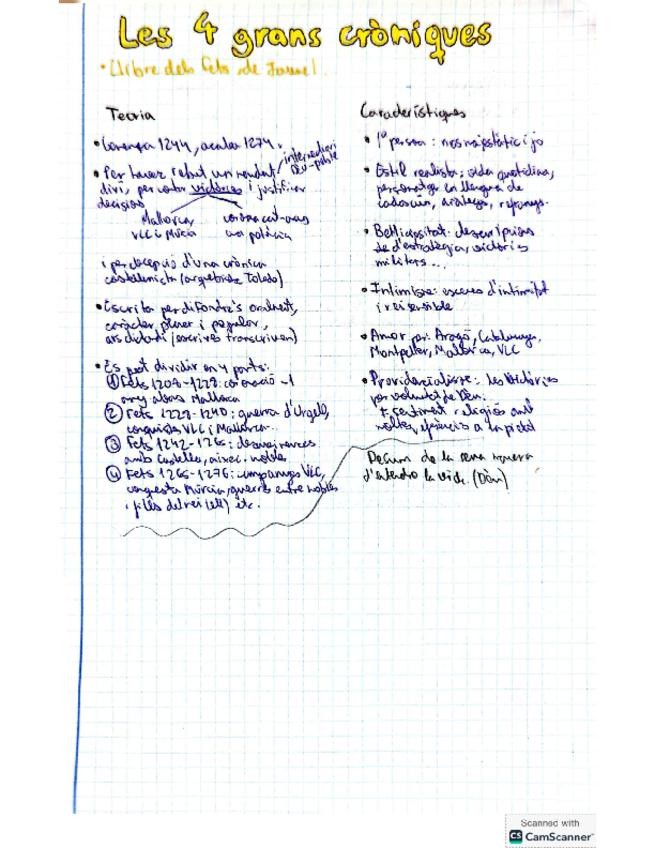 Les 4 grans cròniques
• Llibre dels fets de Jaume I.
Teoria
• Comença 1244, acaba 1274.
• Per haver rebut un mandat
intermediari
Déu-poble
diví, per contar victòries i justificar
decisions
Mallorca,
VLC i Múrcia
una política
i per decepció d'una crònica
(arquebisbe Toledo)
• Escrita per difondre's oralment,
caràcter planer i popular,
(escrives transcrivien)
• Es pot dividir en 4 parts:
① Fets 1208-1228:
abans Mallorca
② Fets 1229-1240: guerra d'Urgell,
conquista VLC i Mallorca...
③ Fets 1242-1265: desavinences
amb Castella, nobles
④ Fets 1265-1276: campanya VLC,
conquesta Múrcia, guerres entre nobles
i fills del rei (ell) etc.
Característiques
• 1ª persona: nos majestàtic i jo
• Estil realista: vida quotidiana,
personatges en llengua de
cadascun, refranys.
• Bel·licositat: descripcions
d'estratègia, victòries
militars...
• Intimisme: escenes d'intimitat
i rei sensible
• Amor per: Aragó, Catalunya,
Montpeller, Mallorca, VLC
• Providencialisme: les victòries
per voluntat de Déu.
+ sentiment religiós amb
moltes referències a la pietat
de la seua manera
d'entendre la vida. (Déu)
Scanned with
CS CamScanner